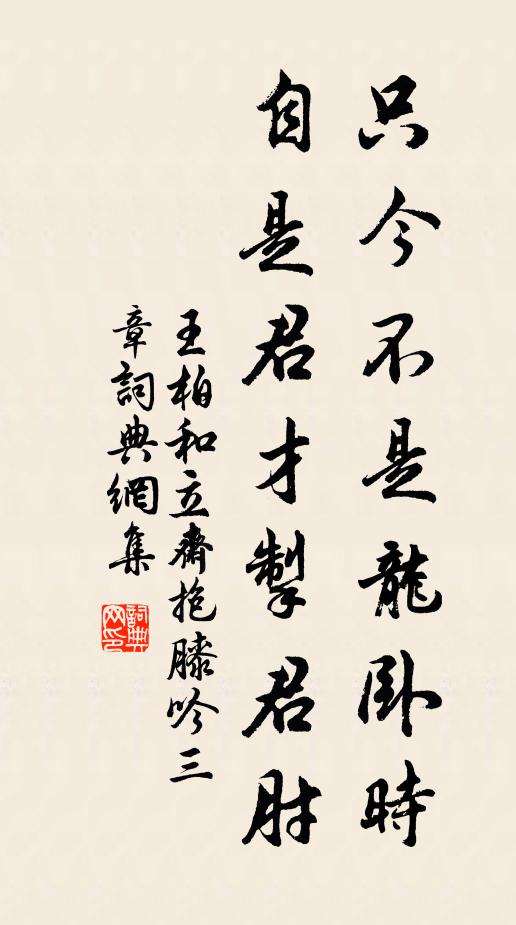 只今不是龍臥時
自是君才掣君肘
王柏和立齋抱膝吟三
章詞典網集
詞典
网印